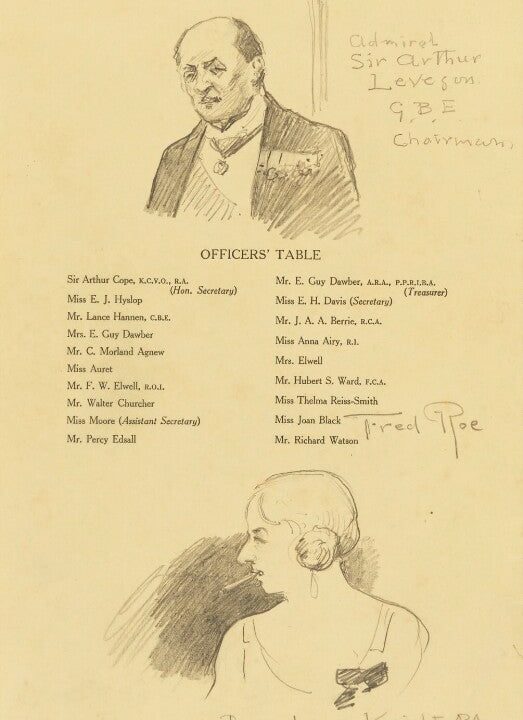 Admiral
Sir Arthur
Leveson
G.B.E
Chairman,
OFFICERS' TABLE
Sir Arthur Cope, K.C.V.O., R.A.
(Hon. Secretary)
Miss E. J. Hyslop
Mr. Lance Hannen, C.B.E.
Mrs. E. Guy Dawber
Mr. C. Morland Agnew
Miss Auret
Mr. F. W. Elwell, R.O.I.
Mr. Walter Churcher
Miss Moore (Assistant Secretary)
Mr. Percy Edsall
Mr. E. Guy Dawber, A.R.A., P.P.R.I.B.A.
(Treasurer)
Miss E. H. Davis (Secretary)
Mr. J. A. A. Berrie, R.C.A.
Miss Anna Airy, R.I.
Mrs. Elwell
Mr. Hubert S. Ward, F.C.A.
Miss Thelma Reiss-Smith
Miss Joan Black
Mr. Richard Watson
Fred Roe